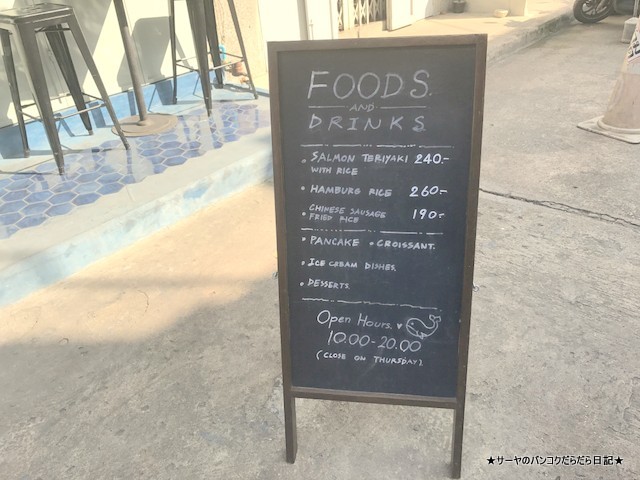 FOODS
AND
DRINKS
• SALMON TERIYAKI 240.-
WITH RICE
• HAMBURG RICE 260.-
• CHINESE SAUSAGE 190.-
FRIED RICE
• PANCAKE • CROISSANT.
• ICE CREAM DISHES.
• DESSERTS.
Open Hours. ♥
10.00-20.00
(CLOSE ON THURSDAY).
★サーヤのバンコクだらだら日記★